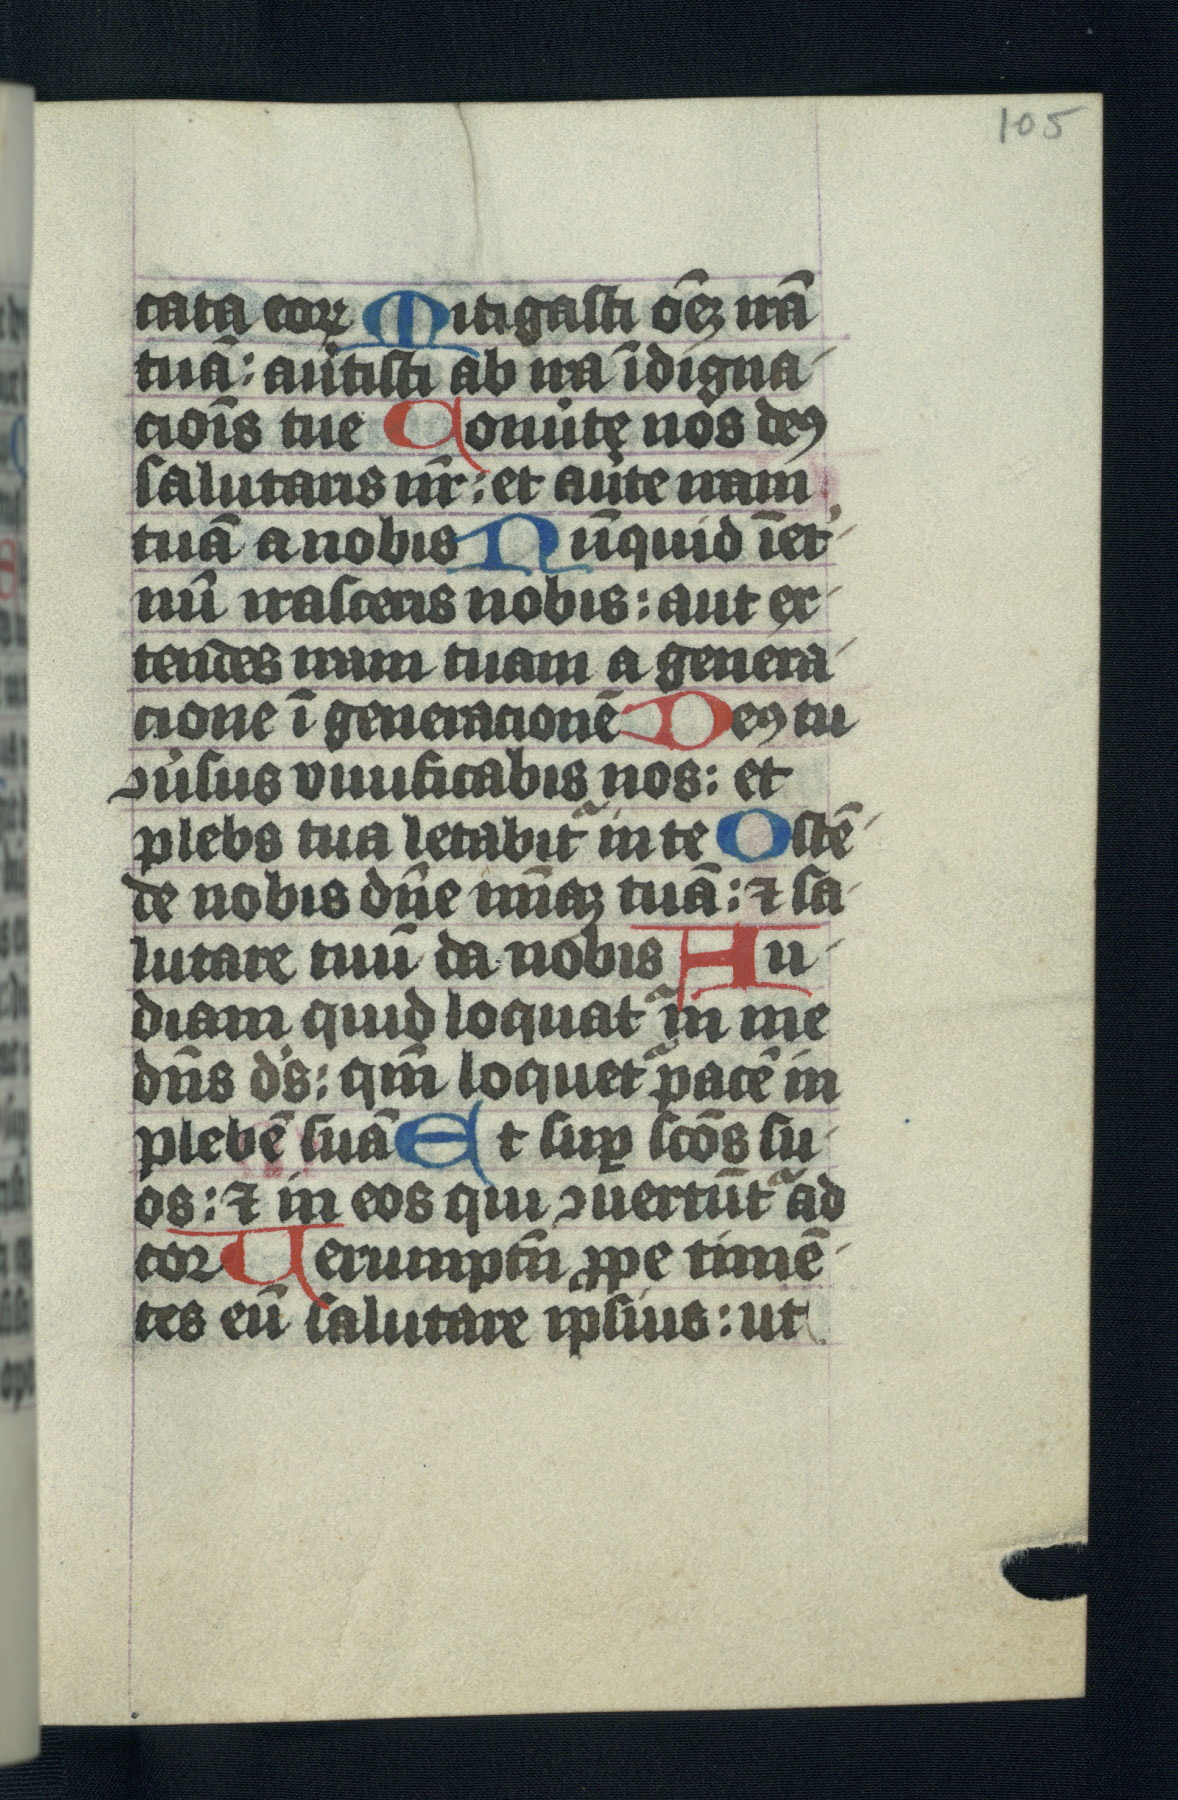 105
cata eoꝝ Mitigasti oēꝫ irā
tuā: au̾tisti ab ira īdigna
cioīs tue Conu̾te nos deꝰ
salutaris nr̄: et au̾te iram
tuā a nobis Nūquid īet̾
nū irasceris nobis: aut ex
tendes iram tuam a genera
cione ī generacionē Deꝰ tu
ꝯu̾sus viuificabis nos: et
plebs tua letabit᷑ in te Ostē
de nobis dn̄e mīaꝫ tuā: ⁊ sa
lutare tuū da nobis Au
diam quid loquat᷑ in me
dn̄s d̾s: qm̄ loquet᷑ pacē in
plebē suā Et suꝑ scōs su
os: ⁊ in eos qui ꝯuertūt᷑ ad
cor Uerumptn̄ ꝓpe timē
tes eū salutare ip̄sius: ut